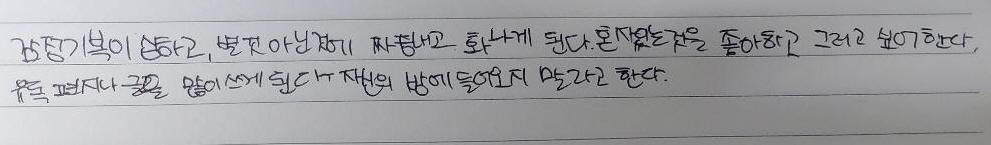 감정기복이 심하고, 별것 아닌것에 짜증내고 화나게 된다. 혼자있는것을 좋아하고 그러고 싶어한다.
유독 편지나 글을 많이 쓰게 된다 자신의 방에 들어오지 말라고 한다.